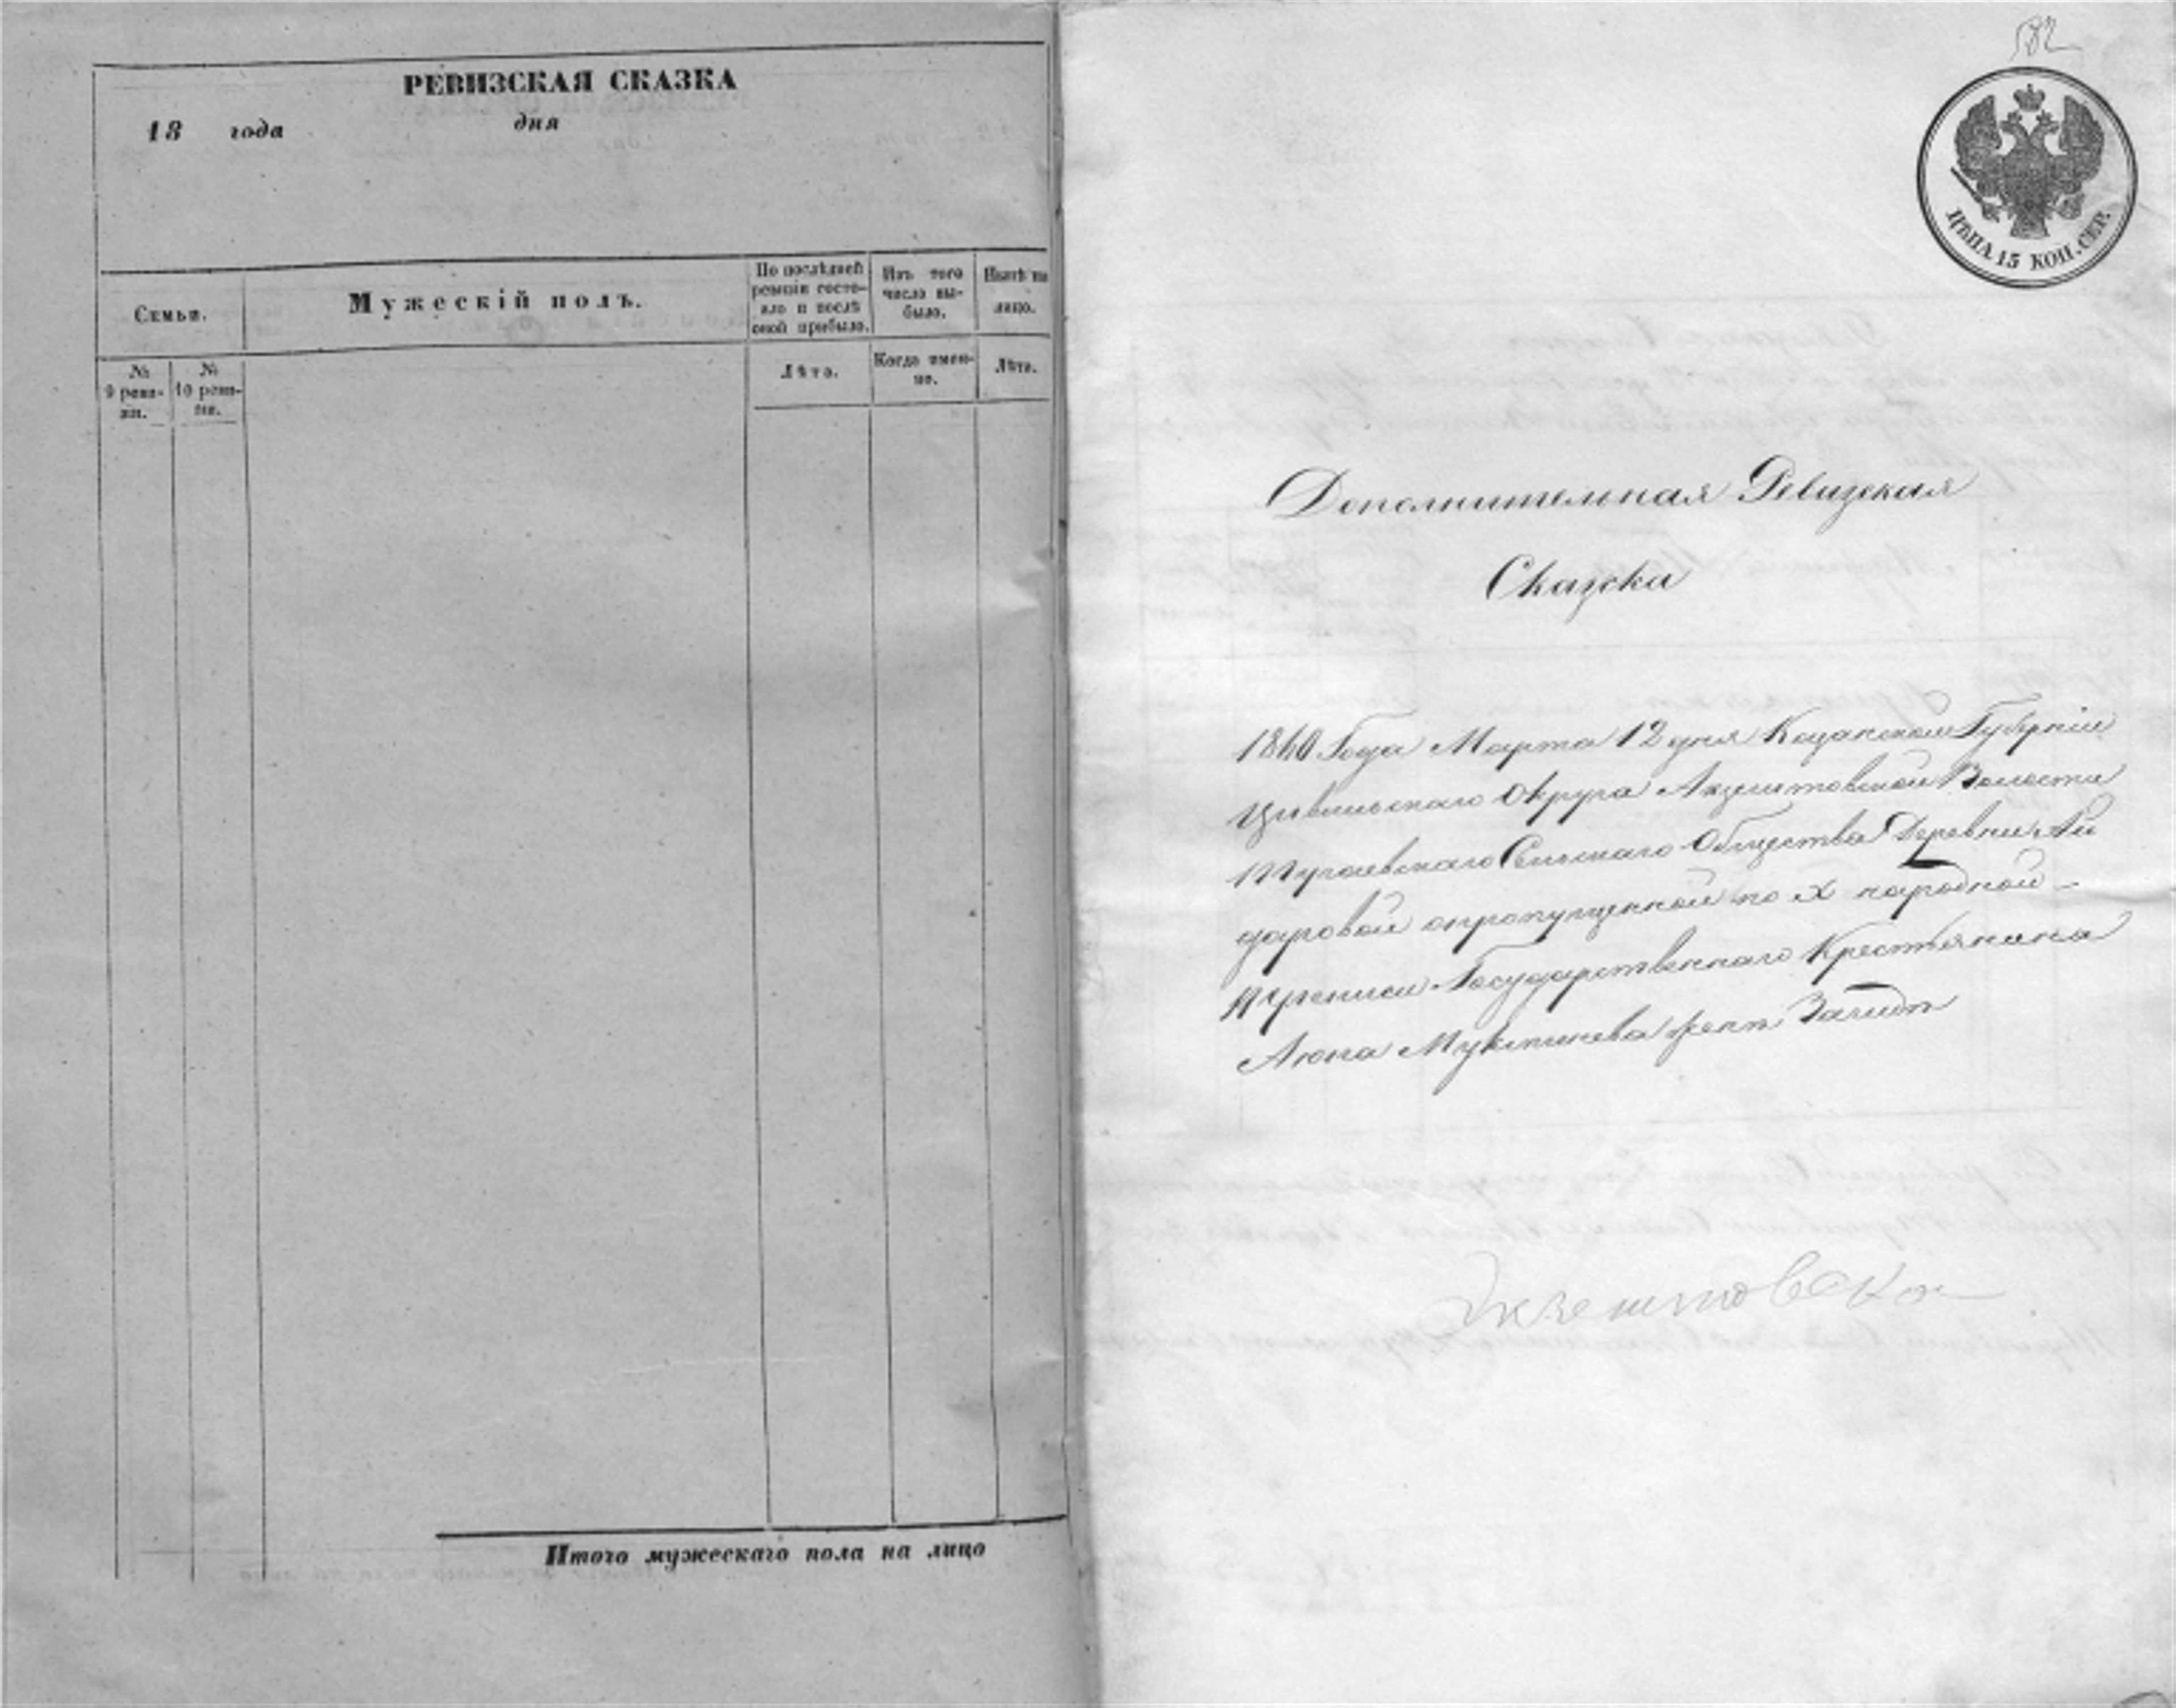 РЕВИЗСКАЯ СКАЗКА
18 года дня
Семьи.
Мужескій полъ.
По послѣдней ревизіи состояло и послѣ оной прибыло.
Изъ того числа выбыло.
Нынѣ на лицо.
№ 9 ревизіи.
№ 10 ревизіи.
Лѣта.
Когда именно.
Лѣта.
Итого мужескаго пола на лицо
582
ЦѢНА 15 КОП. СЕР.
Дополнительная Ревизская
Сказка
1860 Года Марта 12 дня Казанской Губерніи
Цивильскаго Округа Акзегитовской Волости
Тугаевскаго Сельскаго Общества Деревни Ай
даровой опропущенной по X народной
Переписи Государственнаго Крестьянина
Аюпа женѣ